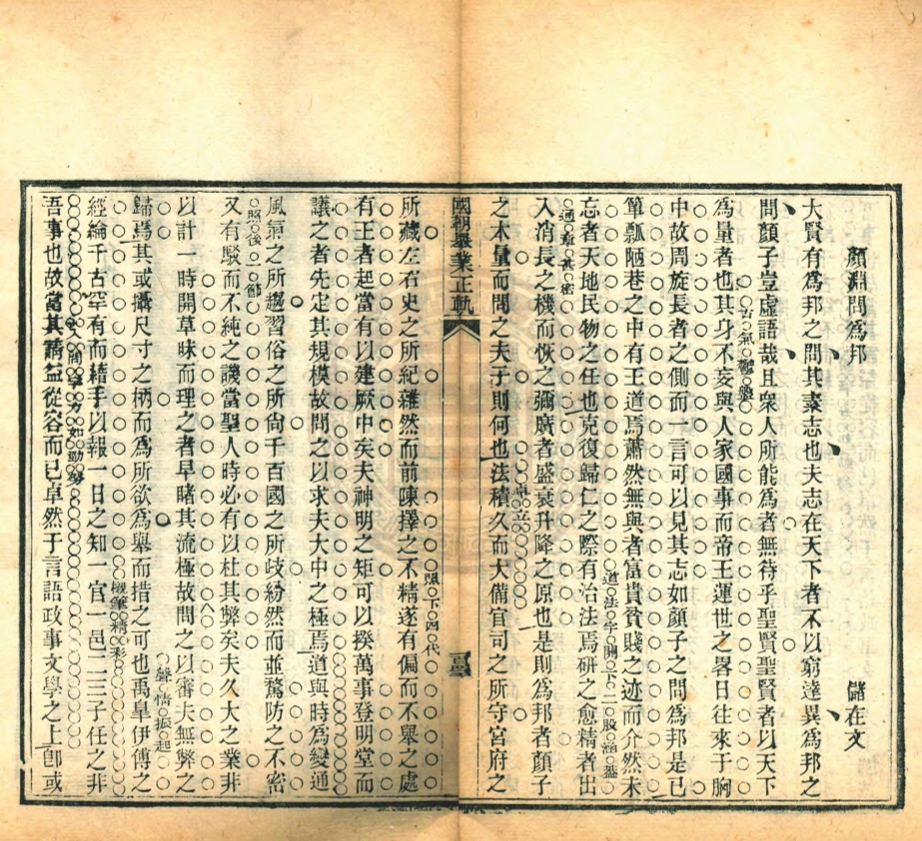 顏淵問爲邦
儲在文
大賢有爲邦之問其素志也夫志在天下者不以窮達異爲邦之
問顏子豈虛語哉且衆人所能爲者無待乎聖賢聖賢者以天下
爲量者也其身不妄與人家國事而帝王運世之畧日往來于胸
中故周旋長者之側而一言可以見其志如顏子之問爲邦是已
簞瓢陋巷之中有王道焉蕭然無與者富貴貧賤之迹而介然未
忘者天地民物之任也克復歸仁之際有治法焉硏之愈精者出
入消長之機而恢之彌廣者盛衰升降之原也是則爲邦者顏子
之本量而問之夫子則何也法積久而大備官司之所守宮府之
國朝舉業正軌
所藏左右史之所紀雜然而前陳擇之不精遂有偏而不舉之處
照下四代
有王者起當有以建厥中矣夫神明之矩可以揆萬事登明堂而
議之者先定其規模故問之以求夫大中之極焉道與時爲變通
風氣之所趨習俗之所尙千百國之所歧紛然而並騖防之不密
照後一節
又有駁而不純之譏當聖人時必有以杜其弊矣夫久大之業非
以計一時開草昧而理之者早睹其流極故問之以審夫無弊之
聲情振起
歸焉其或攝尺寸之柄而爲所欲爲舉而措之可也禹臯伊傅之
經綸千古罕有而藉手以報一日之知一官一邑二三子任之非
吾事也故當其請益從容而已卓然于言語政事文學之上卽或